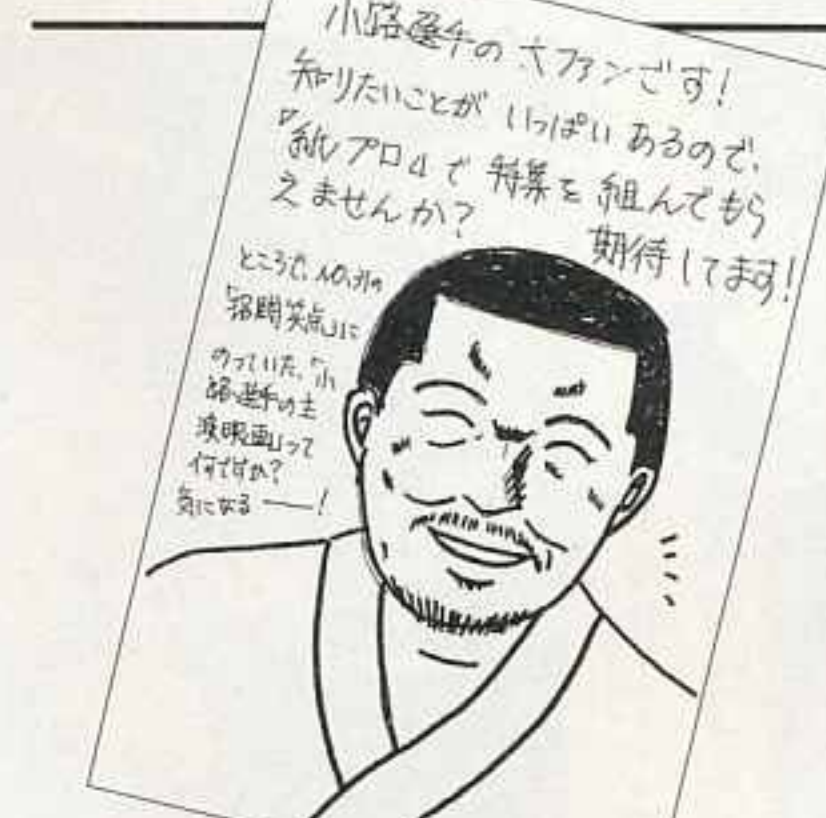 小路選手の大ファンです!
知りたいことが いっぱい あるので、
『紙プロ』で 特集を 組んでもら
えませんか? 期待してます!
ところで、NO.31の
『笑点』に
のっていた、「小
路選手の主
演映画」って
何ですか?
気になる──!